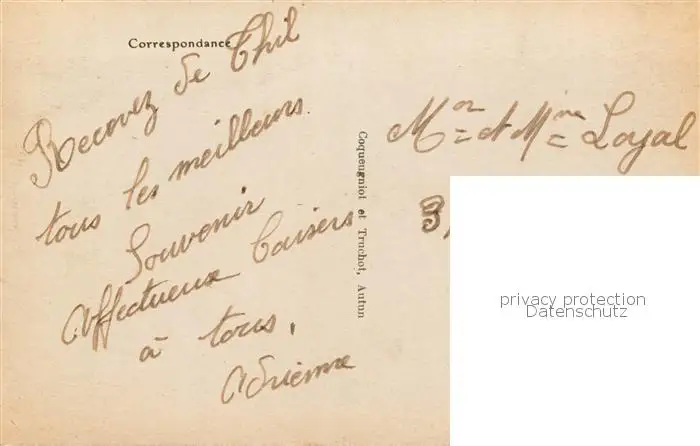 Correspondance
Recevez de Thil
tous les meilleurs
Souvenir
affectueux baisers
à tous,
Adrienne
Coqueugniot et Truchot, Autun
Mon et Mme Loyal
3,
privacy protection
Datenschutz